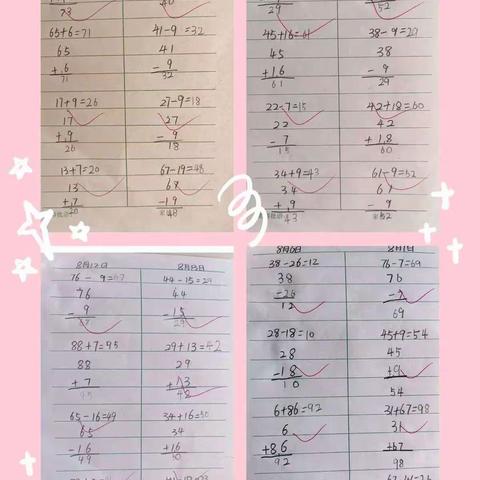 73
65+6=71
65
+ 6
71
17+9=26
17
+ 9
26
13+7=20
13
+ 7
20
40
41-9=32
41
- 9
32
27-9=18
27
- 9
18
67-19=48
67
-19
48
29
45+16=61
45
+16
61
22-7=15
22
- 7
15
34+9=43
34
+ 9
43
52
38-9=29
38
- 9
29
42+18=60
42
+18
60
61-9=52
61
- 9
52
8月12日
76-9=67
76
- 9
67
88+7=95
88
+ 7
95
65-16=49
65
-16
49
8月13日
44-15=29
44
-15
29
29+13=42
29
+13
42
34+16=50
34
+16
50
38-26=12
38
-26
12
28-18=10
28
-18
10
6+86=92
6
+86
92
76-7=69
76
- 7
69
45+9=54
45
+9
54
31+67=98
31
+67
98